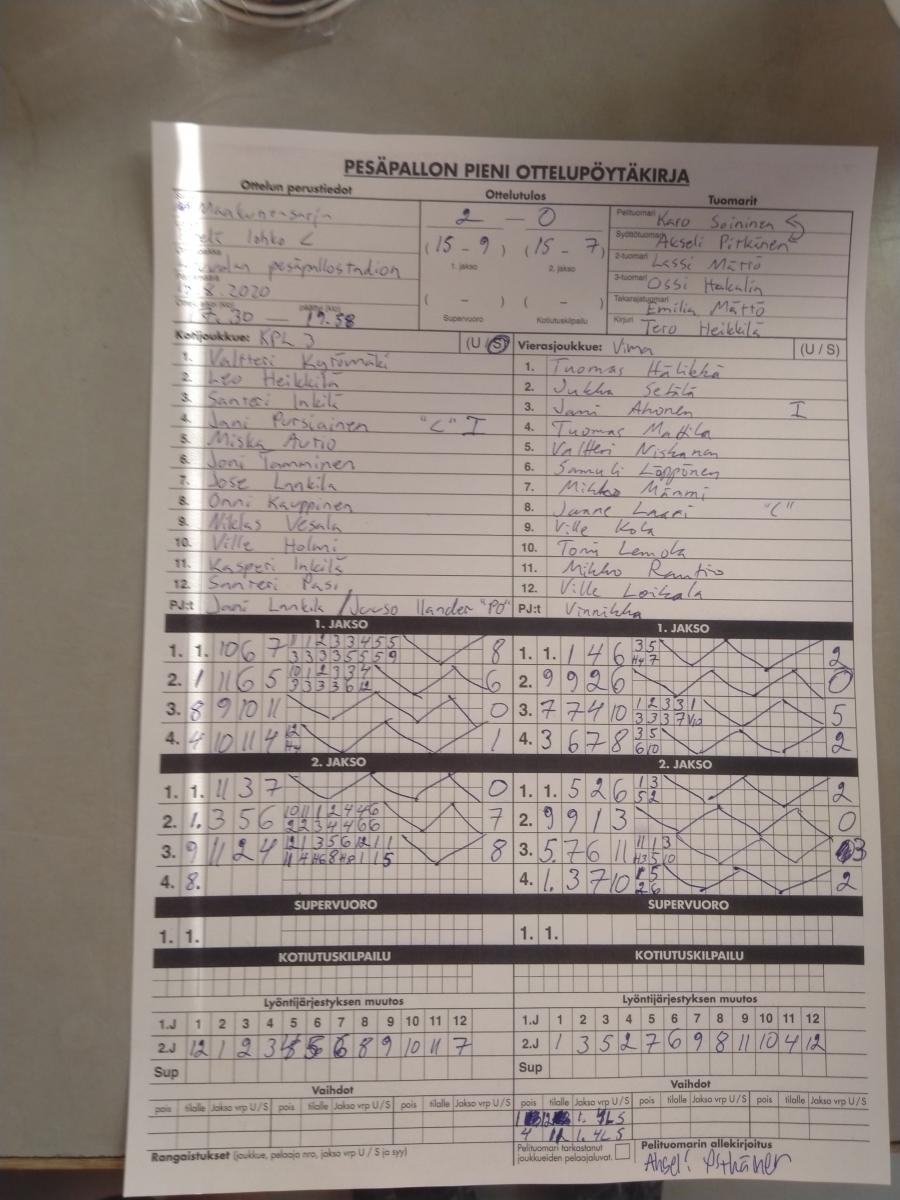 PESÄPALLON PIENI OTTELUPÖYTÄKIRJA
Ottelun perustiedot Ottelutulos Tuomarit
Maakuntasarja
lohko C
pesäpallostadion
.8.2020
.30 — 19.58
2 – 0
(15 – 9) (15 – 7)
1. jakso 2. jakso
( – ) ( – )
Supervuoro Kotiutuskilpailu
Pelituomari Karo Soininen
Syöttötuomari Akseli Pitkänen
2-tuomari Lassi Mättö
3-tuomari Ossi Hakalin
Takarajatuomari Emilia Mättö
Kirjuri Tero Heikkilä
Kotijoukkue: KPL 3 (U / S)
1. Valtteri Kyrömäki
2. Leo Heikkilä
3. Santeri Inkilä
4. Jani Pursiainen "C" I
5. Miska Aurio
6. Joni Tamminen
7. Jose Lankila
8. Onni Kauppinen
9. Niklas Vesala
10. Ville Holmi
11. Kasperi Inkilä
12. Santeri Pasi
PJ:t Jani Lankila / Juuso Ilander "PO"
Vierasjoukkue: Vima (U / S)
1. Tuomas Hälikkä
2. Jukka Setälä
3. Jani Ahonen I
4. Tuomas Mattila
5. Valtteri Niskanen
6. Samuli Löppönen
7. Mikko Männi
8. Janne "C"
9. Ville Kola
10. Tomi Lemola
11. Mikko Rautio
12. Ville Loikala
PJ:t Vinnikka
1. JAKSO
1. 1. 10 6 7 1 1 2 3 3 4 5 5 8
3 3 3 3 5 5 5 9
2. 1 11 6 5 10 1 2 3 3 4 6
3 3 3 3 6 12
3. 8 9 10 11 0
4. 4 10 11 4 12 1
H4
1. JAKSO
1. 1. 1 4 6 3 5 2
H4 7
2. 9 9 2 6 0
3. 7 7 4 10 1 2 3 3 1 5
3 3 3 7 V10
4. 3 6 7 8 3 5 2
6 10
2. JAKSO
1. 1. 11 3 7 0
2. 1. 3 5 6 10 11 1 2 4 4 6 7
2 2 3 4 4 6 6
3. 9 11 2 4 12 1 3 5 6 12 1 1 8
11 4 H6 8 H8 1 1 5
4. 8.
2. JAKSO
1. 1. 5 2 6 1 3 2
5 2
2. 9 9 1 3 0
3. 5. 7 6 11 11 1 3 3
H3 5 10
4. 1. 3 7 10 1 5 2
2 6
SUPERVUORO
1. 1.
SUPERVUORO
1. 1.
KOTIUTUSKILPAILU
KOTIUTUSKILPAILU
Lyöntijärjestyksen muutos
1.J 1 2 3 4 5 6 7 8 9 10 11 12
2.J 12 1 2 3 4 5 6 8 9 10 11 7
Sup
Lyöntijärjestyksen muutos
1.J 1 2 3 4 5 6 7 8 9 10 11 12
2.J 1 3 5 2 7 6 9 8 11 10 4 12
Sup
Vaihdot
pois tilalle Jakso vrp U / S pois tilalle Jakso vrp U / S pois tilalle Jakso vrp U / S
Vaihdot
pois tilalle Jakso vrp U / S pois tilalle Jakso vrp U / S pois tilalle Jakso vrp U / S
1. 4L S
4 11 1. 4L S
Rangaistukset (joukkue, pelaaja nro, jakso vrp U / S ja syy)
Pelituomari tarkastanut
joukkueiden pelaajaluvat.
Pelituomarin allekirjoitus
Akseli Pitkänen